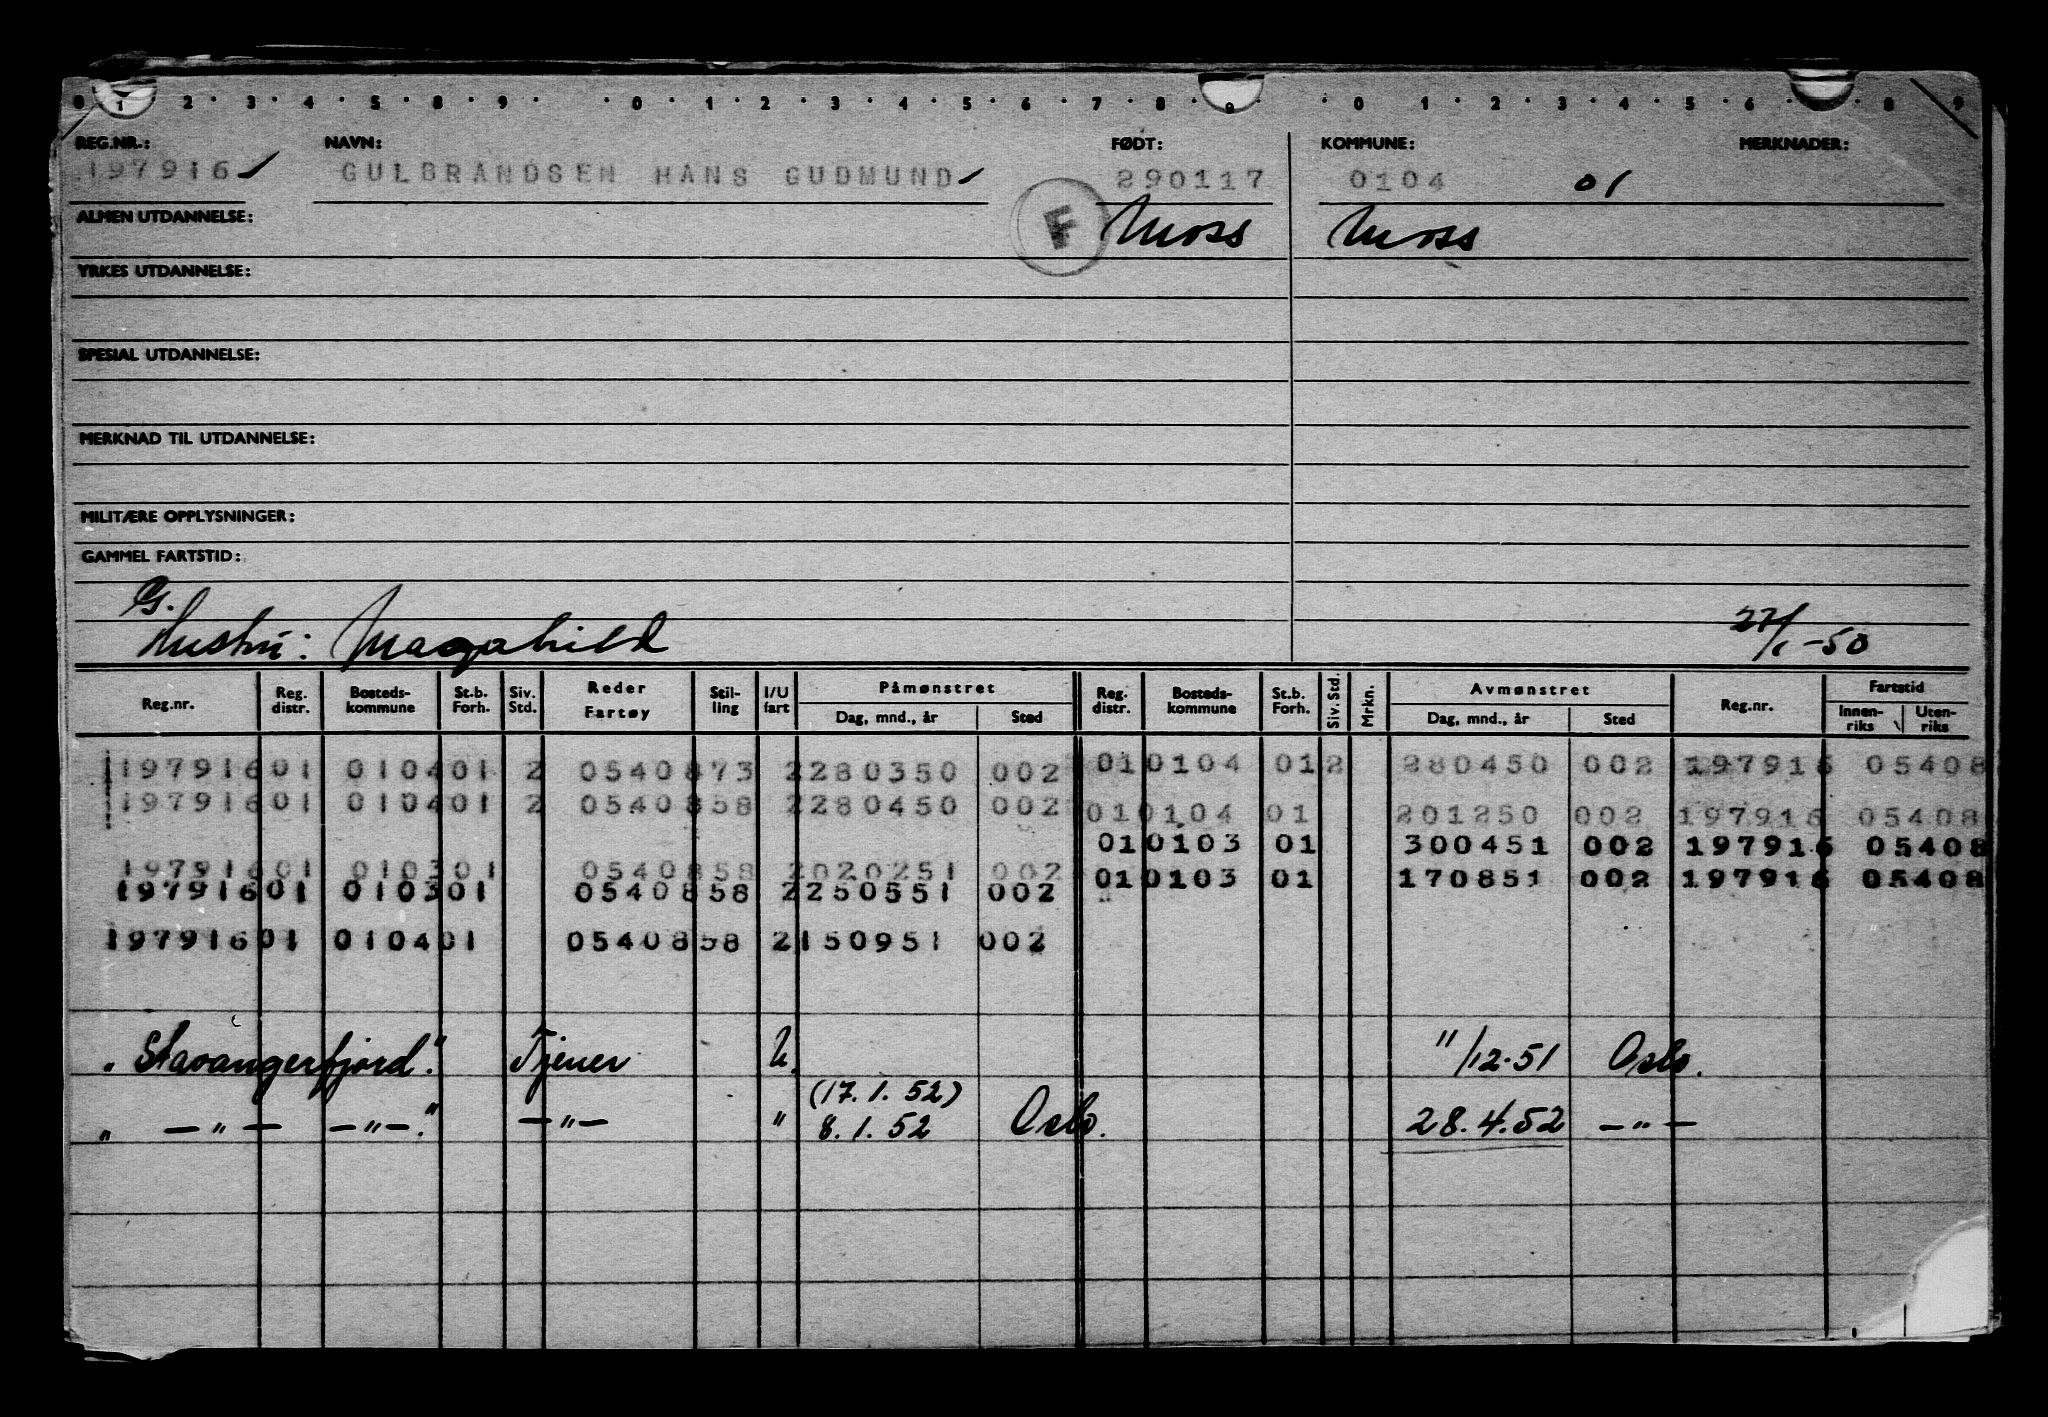 0 1 2 3 4 5 8 9 0 1 2 3 4 5 6 7 8 9 0 1 2 3 4 5 6 8 9
REG.NR.: NAVN: FØDT: KOMMUNE: MERKNADER:
197916 GULBRANDSEN HANS GUDMUND 290117 0104 01
ALMEN UTDANNELSE: F Moss Moss
YRKES UTDANNELSE:
SPESIAL UTDANNELSE:
MERKNAD TIL UTDANNELSE:
MILITÆRE OPPLYSNINGER:
GAMMEL FARTSTID:
G.
Hustru: Magnhild 27/1-50
Reg.nr. Reg. distr. Bosteds-kommune St.b. Forh. Siv. Std. Reder Fartøy Stil-ling I/U fart Påmønstret Dag, mnd., år Sted Reg. distr. Bosteds-kommune St.b. Forh. Siv. Std. Mrkn. Avmønstret Dag, mnd., år Sted Reg.nr. Fartstid Innen-riks Uten-riks
197916 01 0104 01 2 0540873 2 280350 002 01 0104 01 2 280450 002 197916 05408
197916 01 0104 01 2 0540858 2 280450 002 01 0104 01 201250 002 197916 05408
01 0103 01 300451 002 197916 05408
197916 01 0103 01 0540858 2 020251 002
197916 01 0103 01 0540858 2 250551 002 01 0103 01 170851 002 197916 05408
197916 01 0104 01 0540858 2 150951 002
„Stavangerfjord." Tjener U. 11/12-51 Oslo.
(17.1.52)
„ —„— —„—." —„— " 8.1.52 Oslo. 28.4.52 —„—